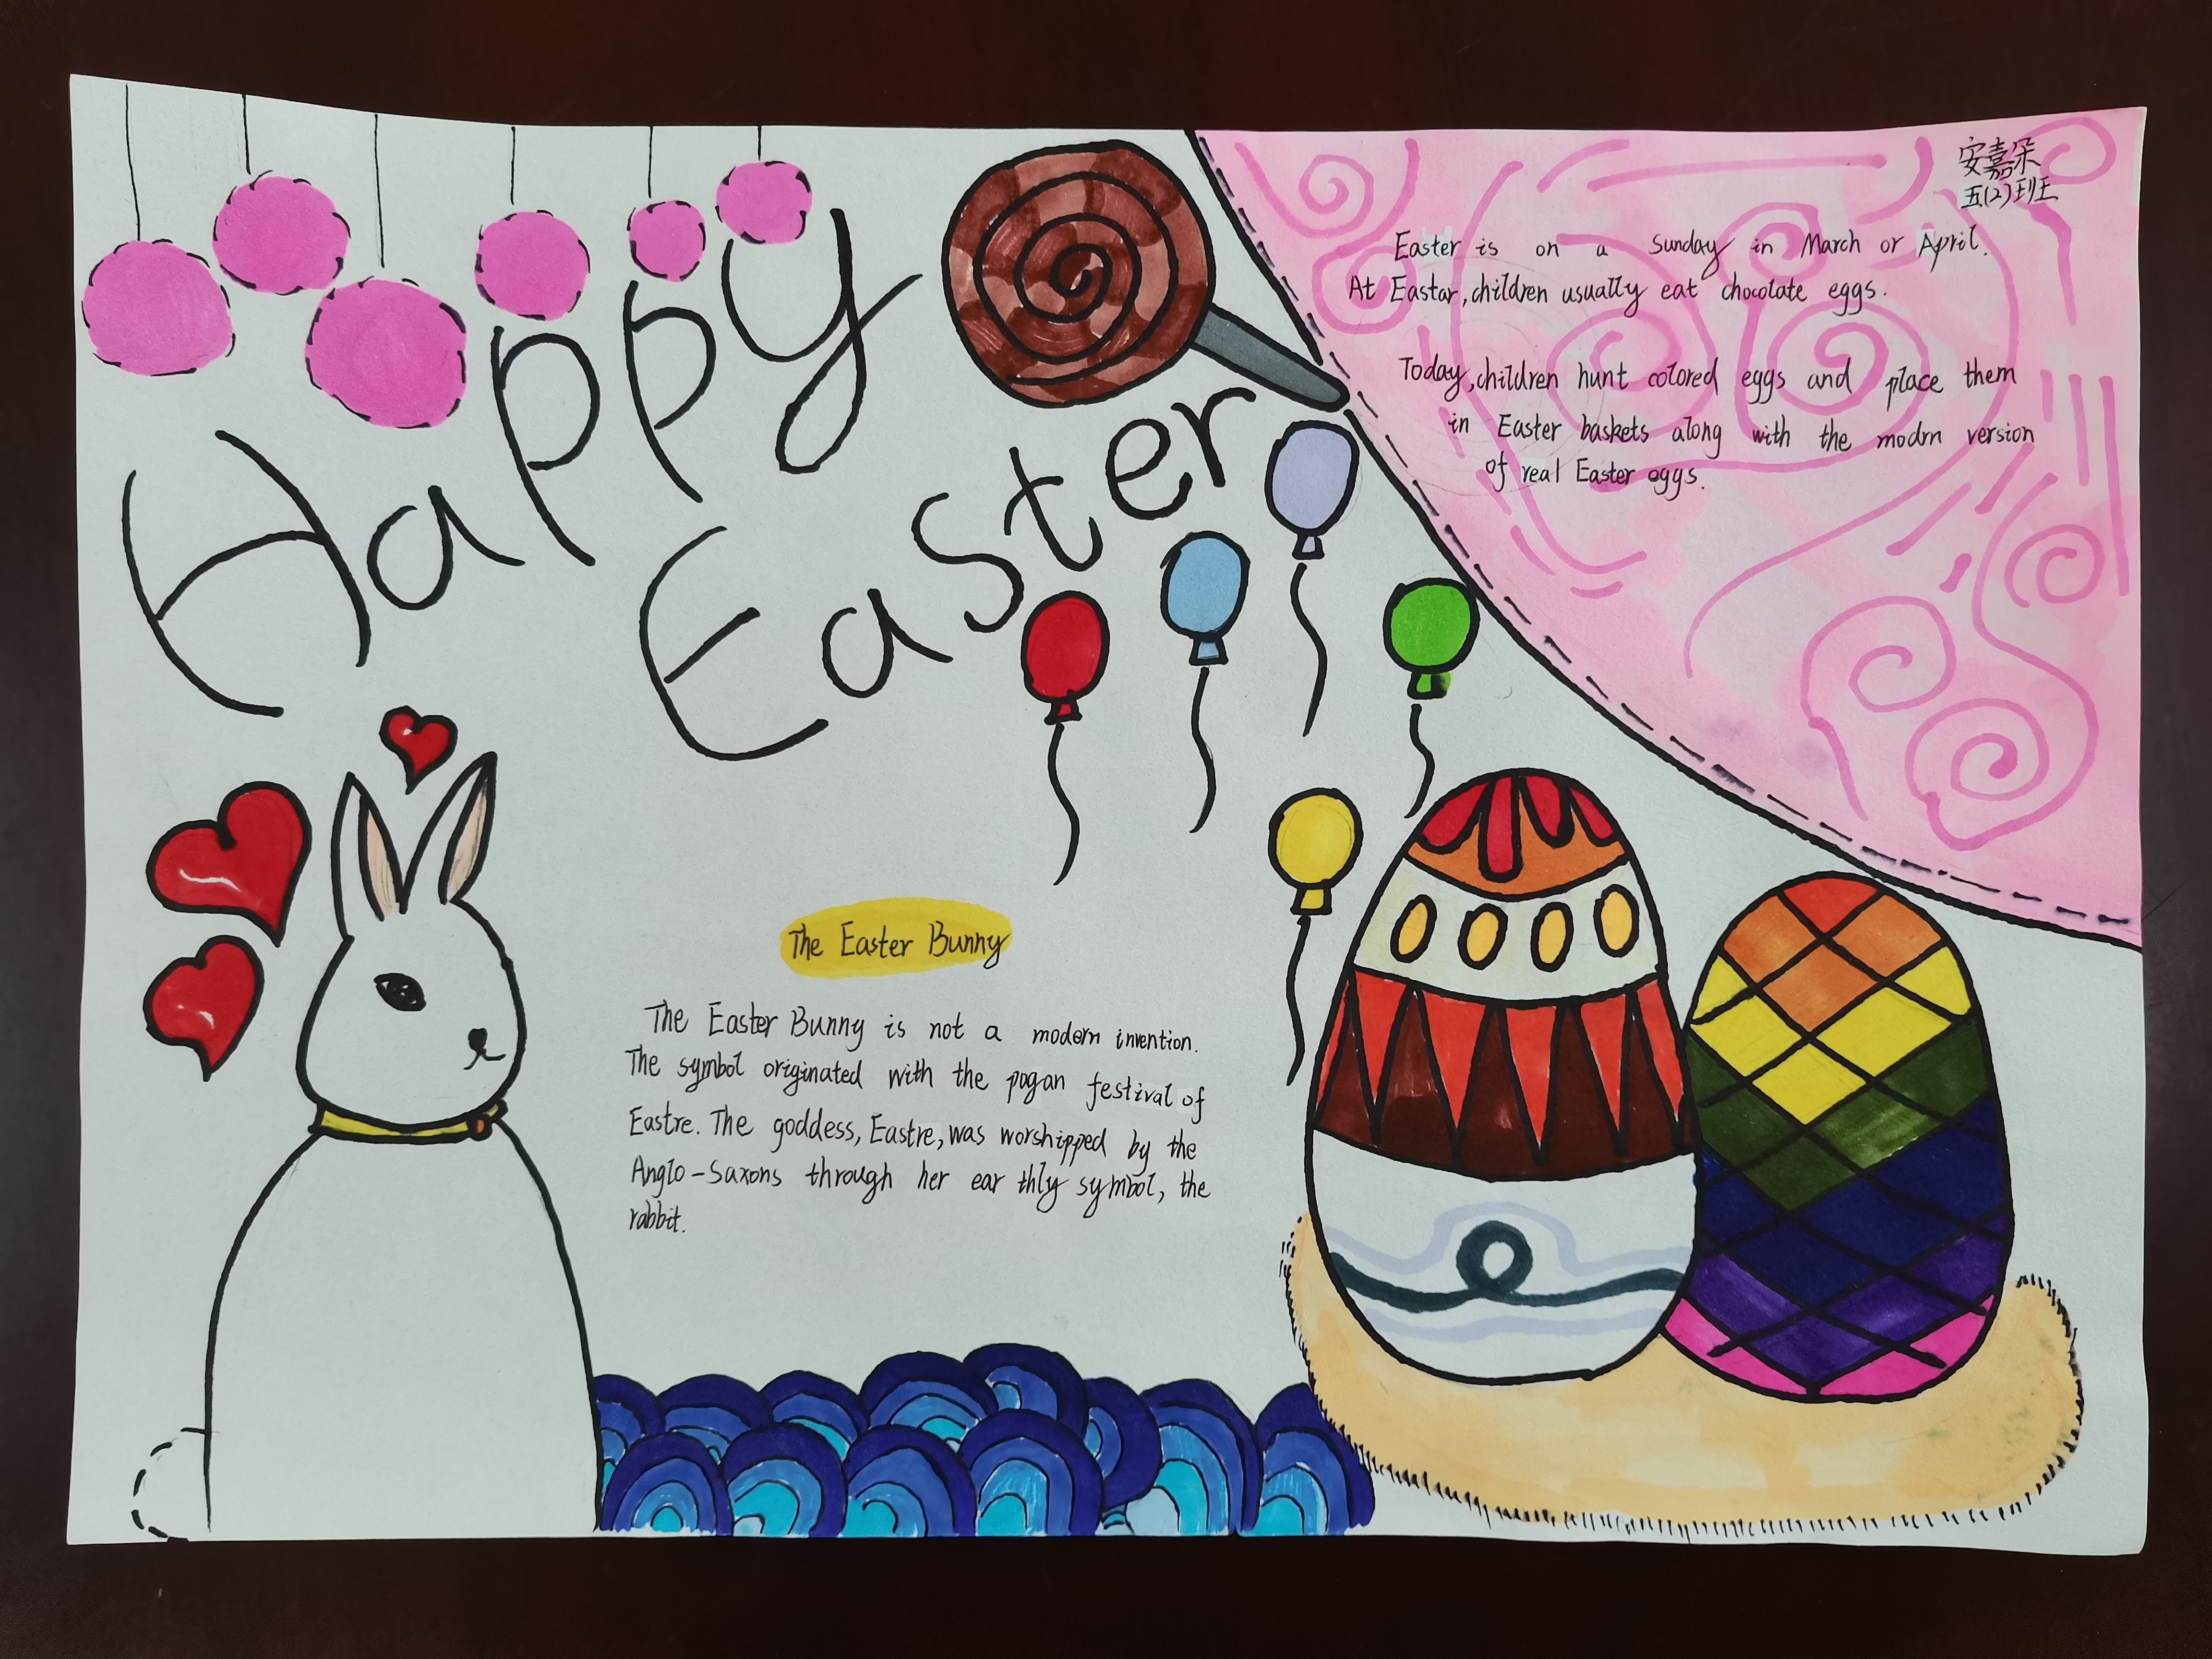 Happy
Easter
安嘉朵
五(2)班
Easter is on a Sunday in March or April.
At Eastar, children usually eat chocolate eggs.
Today, children hunt colored eggs and place them
in Easter baskets along with the modrn version
of real Easter eggs.
The Easter Bunny
The Easter Bunny is not a modern invention.
The symbol originated with the pagan festival of
Eastre. The goddess, Eastre, was worshipped by the
Anglo-Saxons through her ear thly symbol, the
rabbit.